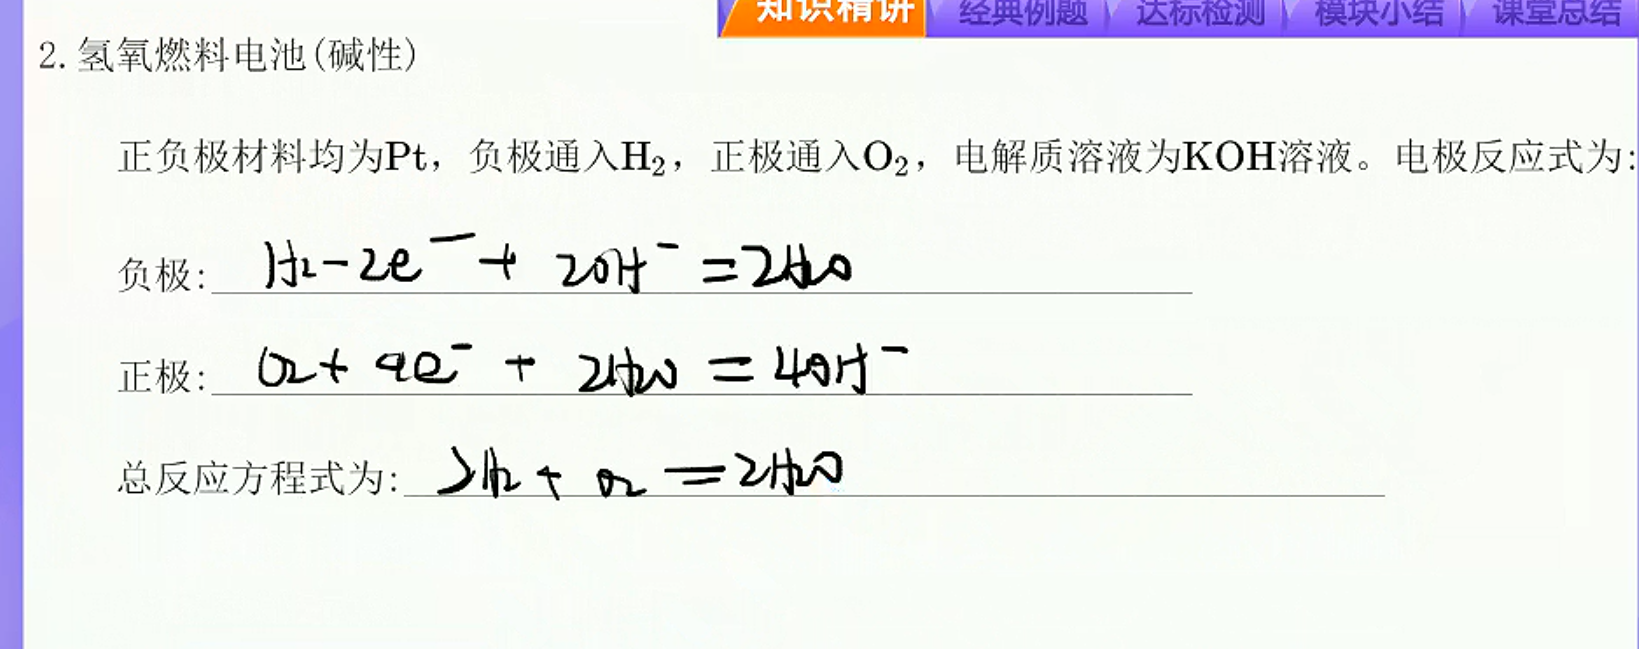 知识精讲 经典例题 达标检测 模块小结 课堂总结
2. 氢氧燃料电池(碱性)
正负极材料均为Pt，负极通入H₂，正极通入O₂，电解质溶液为KOH溶液。电极反应式为:
负极: H₂-2e⁻+2OH⁻=2H₂O
正极: O₂+4e⁻+2H₂O=4OH⁻
总反应方程式为: 2H₂+O₂=2H₂O